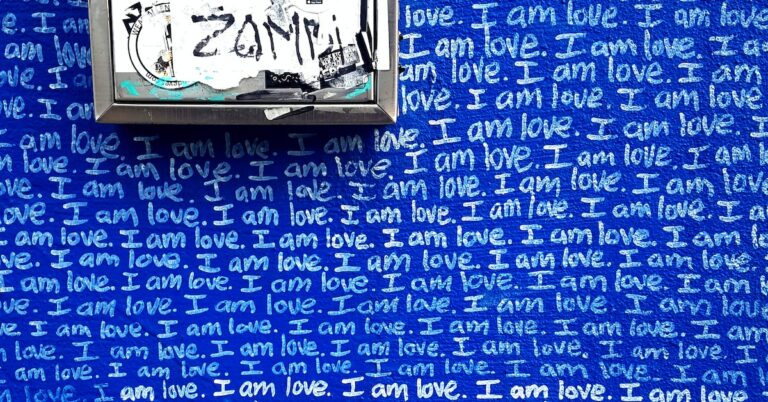 ZOMBi
I am love. love. I am love. I am love. I am love.
am love. I am love. I am love. I am love.
love. am love. I am love. I am love. I am
love. I love. I am love. I am love. I am love.
I am love. I am love. I am love. I am love. I am love. I am love.
am love. I am love. I am love. I am love. I am love. I am love. I am
love. I am love. I am love. I am love. I am love. I am love. I am love.
love. I am love. I am love. I am love. I am love. I am love. I am love.
am love. I am love. I am love. I am love. I am love. I am love.
love. I am love. I am love. I am love. I am love. I am love.
am love. I am love. I am love. I am love. I am love. I am love. I
love. I am love. I am love. I am love. I am love. I am love. I am love
I am love. I am love. I am love. I am love. I am love. I am
love. I am love. I am love. I am love. I am love. I am love. I am
am love. I am love. I am love. I am love. I am love. I am love.
love. I am love. I am love. I am love. I am love. I am love.